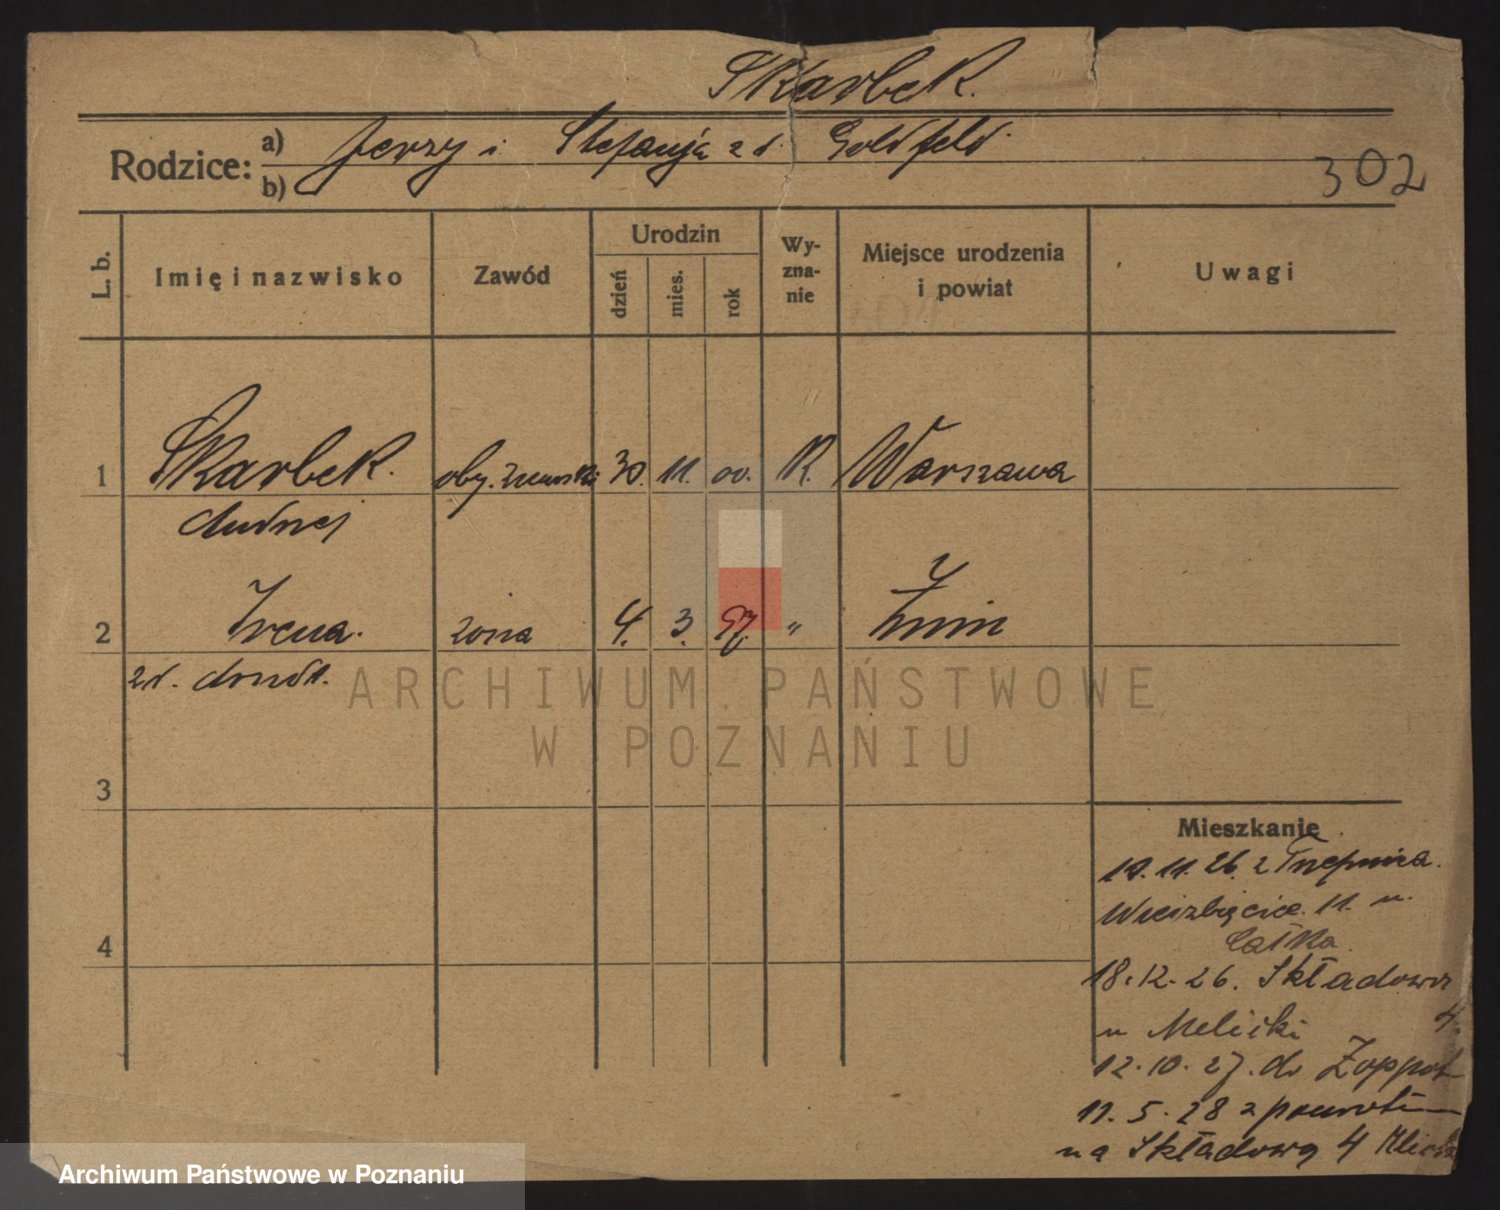 Skarbek.
Rodzice: a) Jerzy i Stefanja z d. Goldfeld.
b)
302
L. b. Imię i nazwisko Zawód Urodzin dzień mies. rok Wyznanie Miejsce urodzenia i powiat Uwagi
1 Skarbek. oby. ziemski 30. 11. 00. R. Warszawa
Andrzej
2 Irena. żona 4. 3. 97 " Żnin
z d.
3
Mieszkanie
19.11.26. z
Wierzbięcice. 11. u.
4
18.12.26. Składowa
4.
u
12.10.27. do Zoppot
11.5.28 z powrotem
na Składową 4
ARCHIWUM PAŃSTWOWE
W POZNANIU
Archiwum Państwowe w Poznaniu